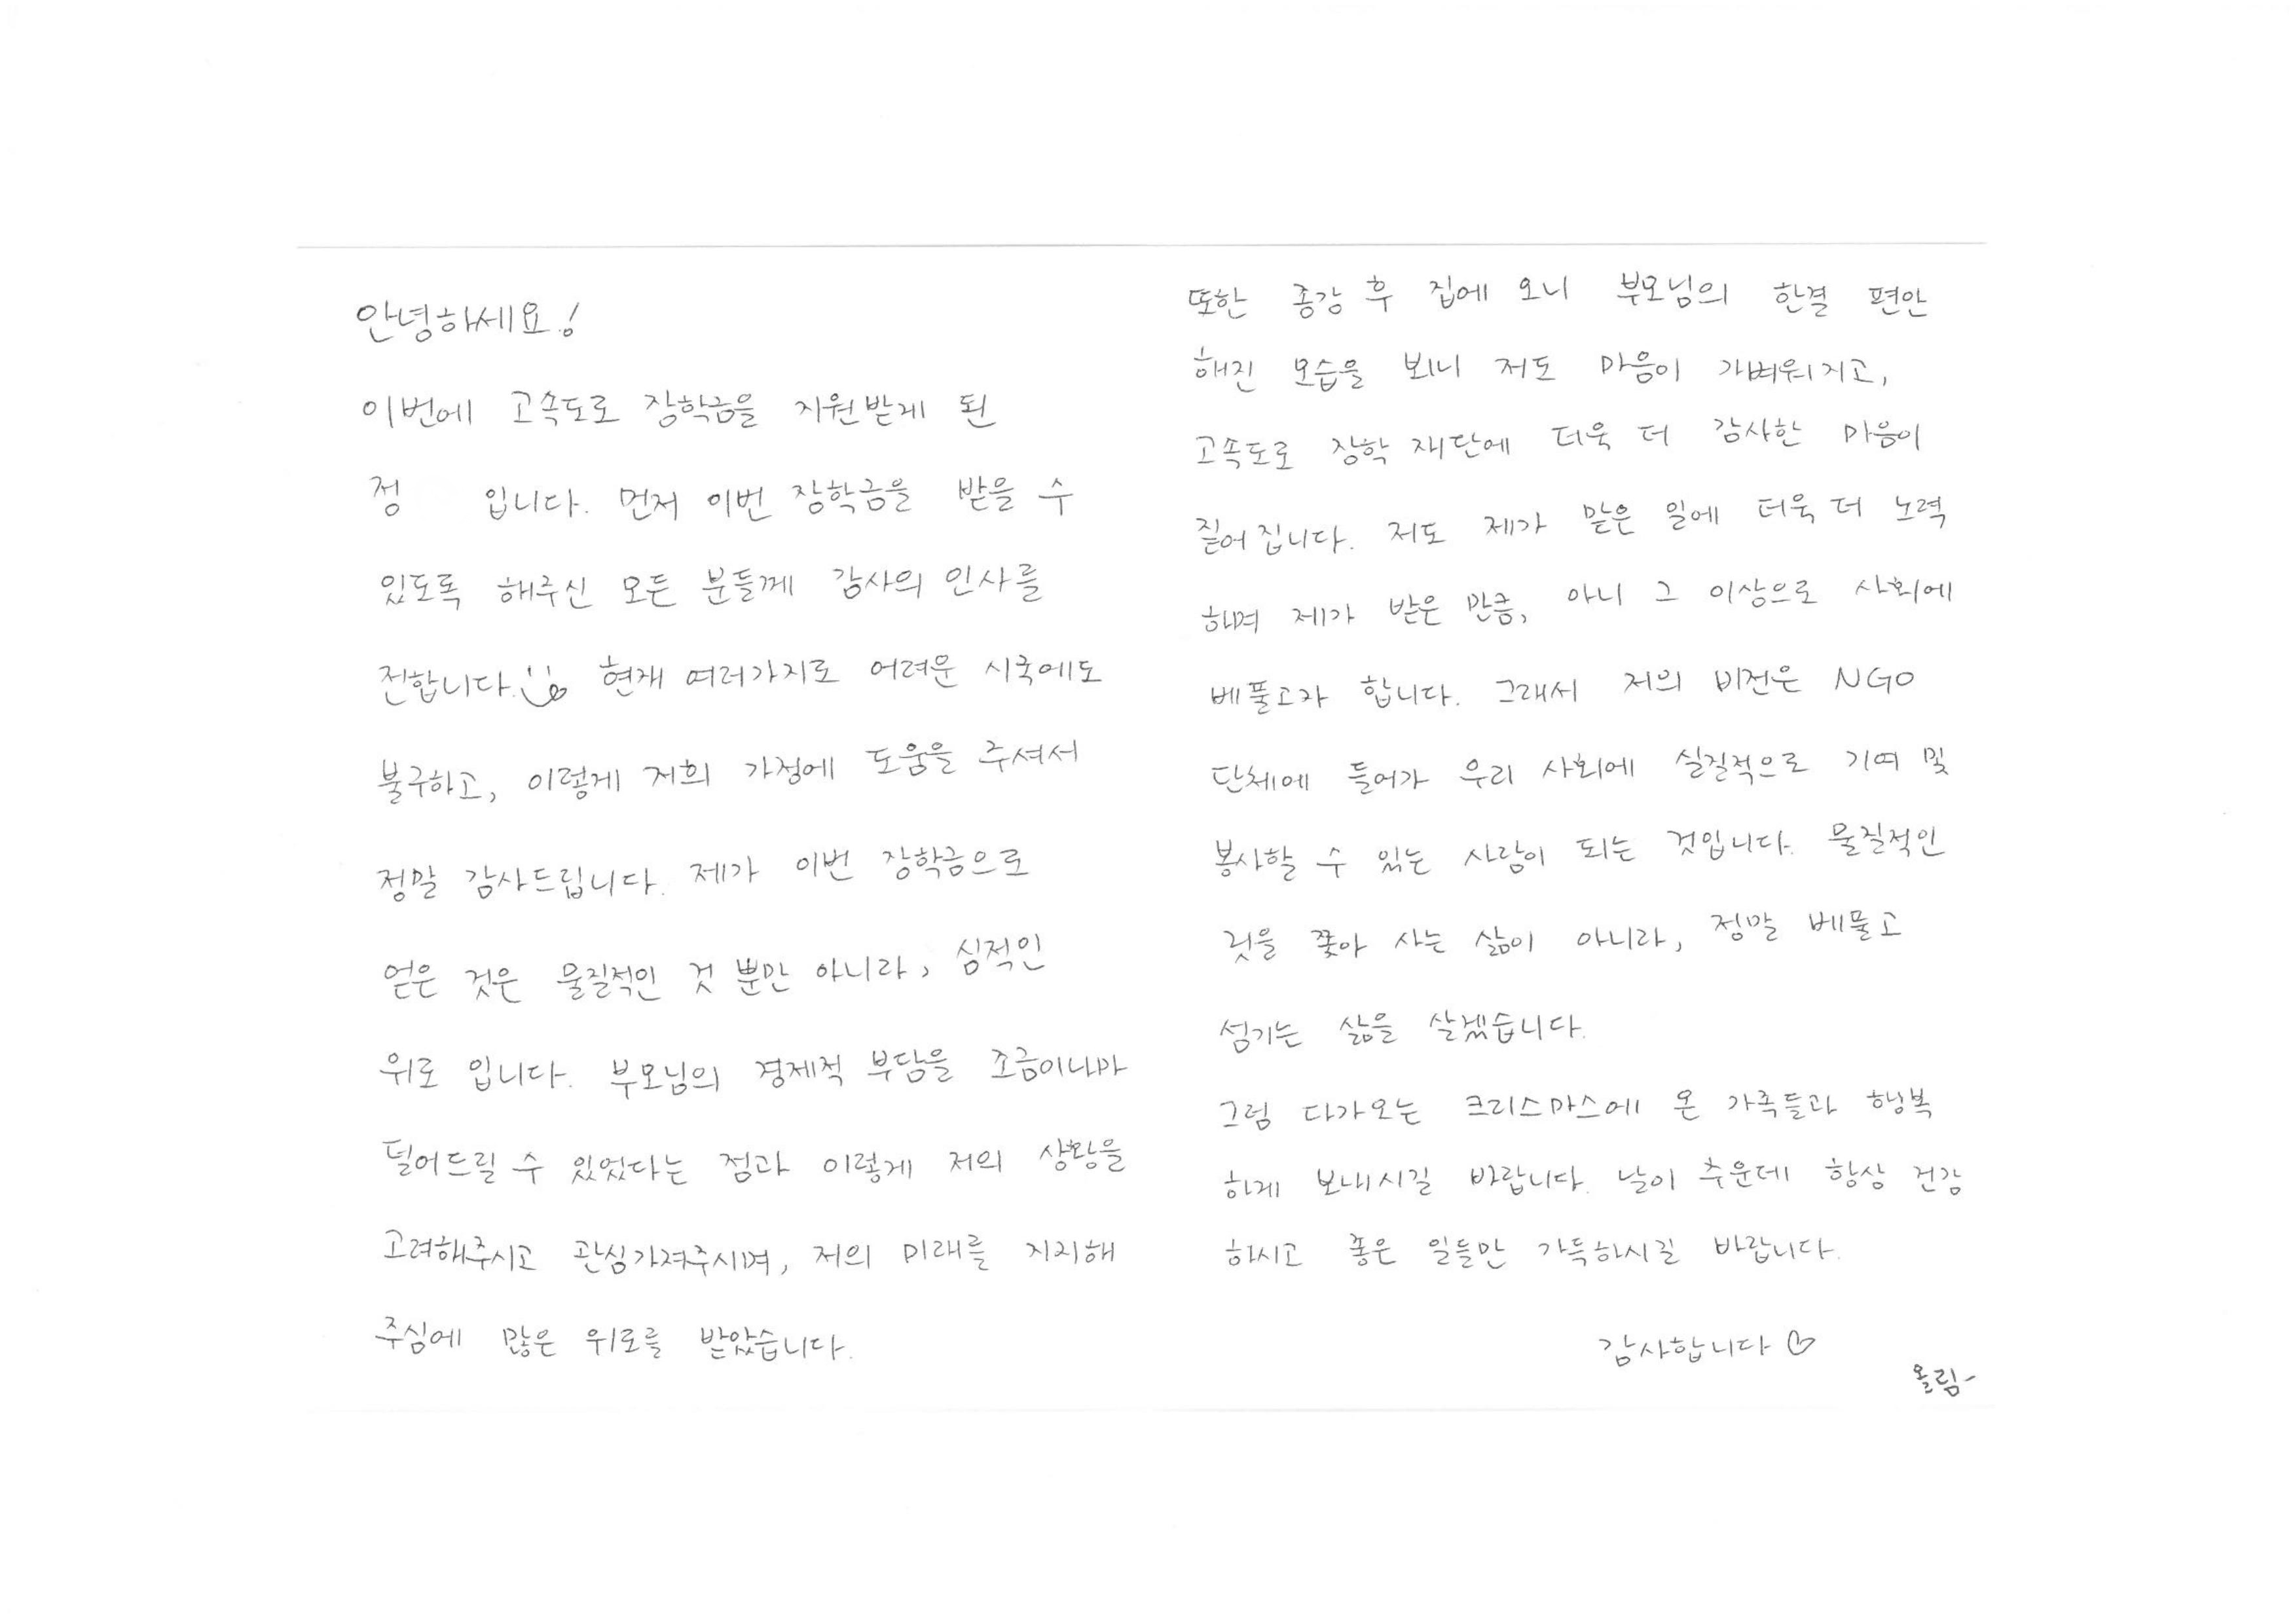 안녕하세요!
이번에 고속도로 장학금을 지원받게 된
정 입니다. 먼저 이번 장학금을 받을 수
있도록 해주신 모든 분들께 감사의 인사를
전합니다. 현재 여러가지로 어려운 시국에도
불구하고, 이렇게 저희 가정에 도움을 주셔서
정말 감사드립니다. 제가 이번 장학금으로
얻은 것은 물질적인 것 뿐만 아니라, 심적인
위로 입니다. 부모님의 경제적 부담을 조금이나마
덜어드릴 수 있었다는 점과 이렇게 저의 상황을
고려해주시고 관심가져주시며, 저의 미래를 지지해
주심에 많은 위로를 받았습니다.
또한 종강 후 집에 오니 부모님의 한결 편안
해진 모습을 보니 저도 마음이 가벼워지고,
고속도로 장학 재단에 더욱 더 감사한 마음이
짙어집니다. 저도 제가 맡은 일에 더욱 더 노력
하며 제가 받은 만큼, 아니 그 이상으로 사회에
베풀고자 합니다. 그래서 저의 비전은 NGO
단체에 들어가 우리 사회에 실질적으로 기여 및
봉사할 수 있는 사람이 되는 것입니다. 물질적인
것을 쫓아 사는 삶이 아니라, 정말 베풀고
섬기는 삶을 살겠습니다.
그럼 다가오는 크리스마스에 온 가족들과 행복
하게 보내시길 바랍니다. 날이 추운데 항상 건강
하시고 좋은 일들만 가득하시길 바랍니다.
감사합니다 ♡
올림-